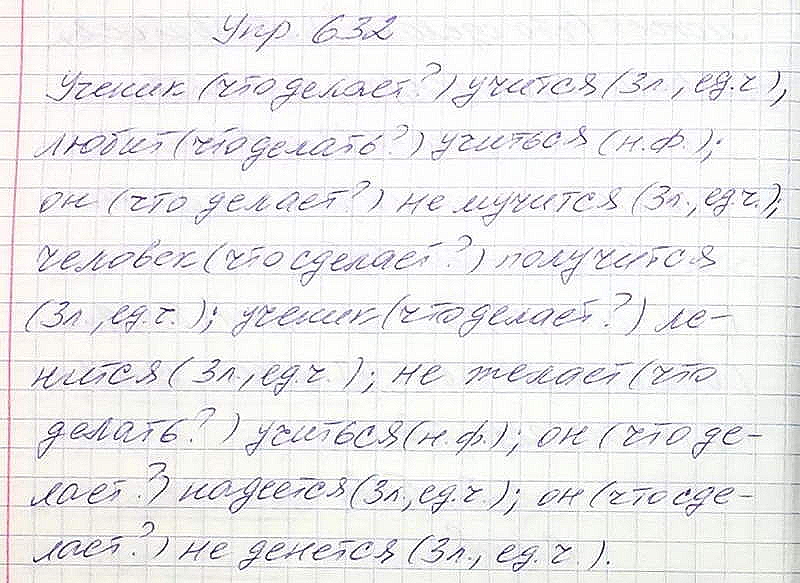 Упр. 632
Ученик (что делает?) учится (3л., ед.ч.),
любит (что делать?) учиться (н.ф.);
он (что делает?) не мучится (3л., ед.ч.);
человек (что сделает?) получится
(3л., ед.ч.); ученик (что делает?) ле-
нится (3л., ед.ч.); не желает (что
делать?) учиться (н.ф.); он (что де-
лает?) надеется (3л., ед.ч.); он (что сде-
лает?) не денется (3л., ед.ч.).